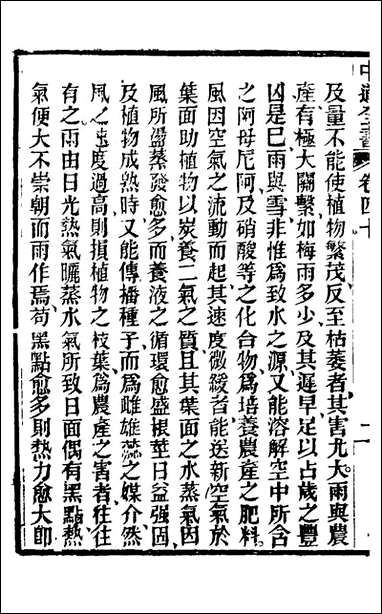 中道全書 卷四十 二
及量不能使植物繁茂反至枯萎者其害尤大雨與農
產有極大關繫如梅雨多少及其遲早足以占歲之豐
凶是巳雨與雪非惟爲致水之源又能溶解空中所含
之阿母尼阿及硝酸等之化合物爲培養農產之肥料
風因空氣之流動而起其速度微緩者能送新空氣於
葉面助植物以炭養二氣之質且其葉面之水蒸氣因
風所盪蒸發愈多而養液之循環愈盛根莖日益強固
及植物成熟時又能傳播種子而爲雌雄蕊之媒介然
風之速度過高則損植物之枝葉爲農產之害者往往
有之雨由日光熱氣曬蒸水氣所致日面偶有黑點熱
氣便大不崇朝而雨作焉苟黑點愈多則熱力愈大卽